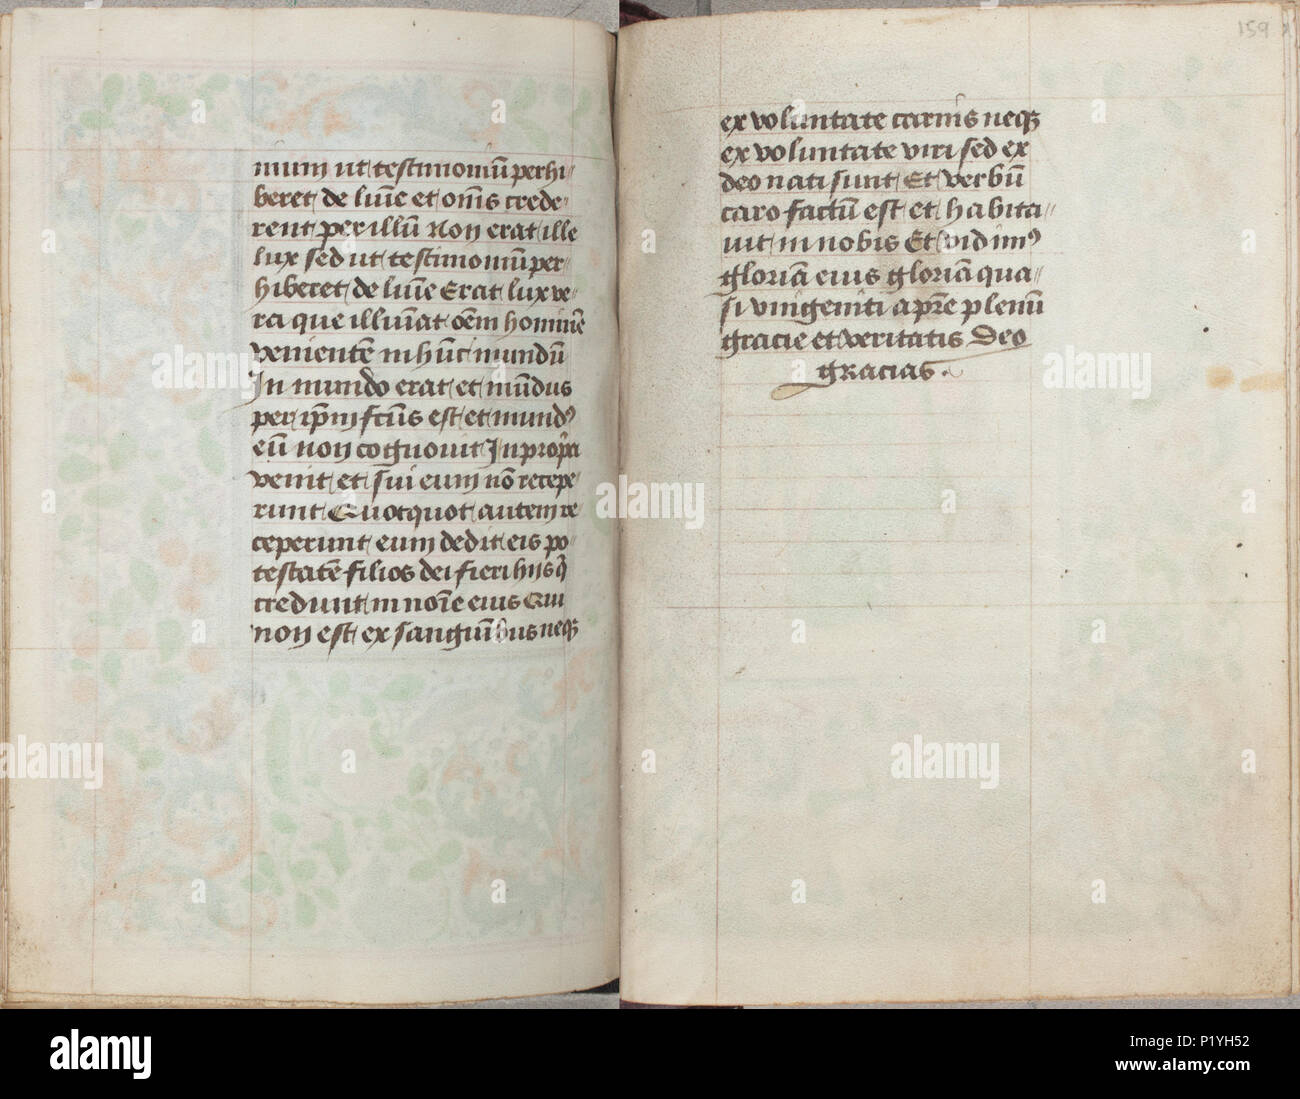 mum ut testimoniū perhi//
beret de lum̄e et om̄s crede-
rent per illū Non erat ille
lux sed ut testimoniū per//
hiberet de lum̄e Erat lux ve//
ra que illum̄at oēm hominē
venientē in hūc mundū
In mundo erat et mūdus
per ip̄m fc̄us est et mundꝰ
eū non cognouit In prop̄a
venit et sui eum nō recepe-
runt Quotquot autem re-
ceperunt eum dedit eis po-
testatē filios dei fieri hijs q̄
credunt in noīe eius Qui
non est ex sanguīibus neqꝫ
159
ex voluntate carnis neqꝫ
ex voluntate viri sed ex
deo nati sunt Et verbū
caro factū est et habita//
uit in nobis Et vidimꝰ
gloriā eius gloriā qua//
si vnigeniti a pr̄e plenū
gracie et veritatis Deo
gracias .
a alamy stock photo
alamy
Image ID: P1YH52
www.alamy.com